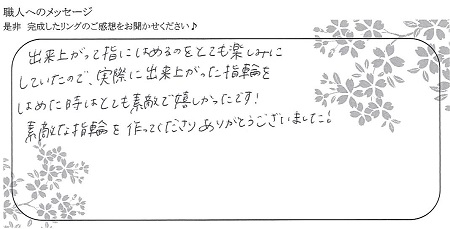 職人へのメッセージ
是非 完成したリングのご感想をお聞かせください♪
出来上がって指にはめるのをとても楽しみに
していたので、実際に出来上がった指輪を
はめた時はとても素敵で嬉しかったです!
素敵な指輪を作ってくださりありがとうございました!